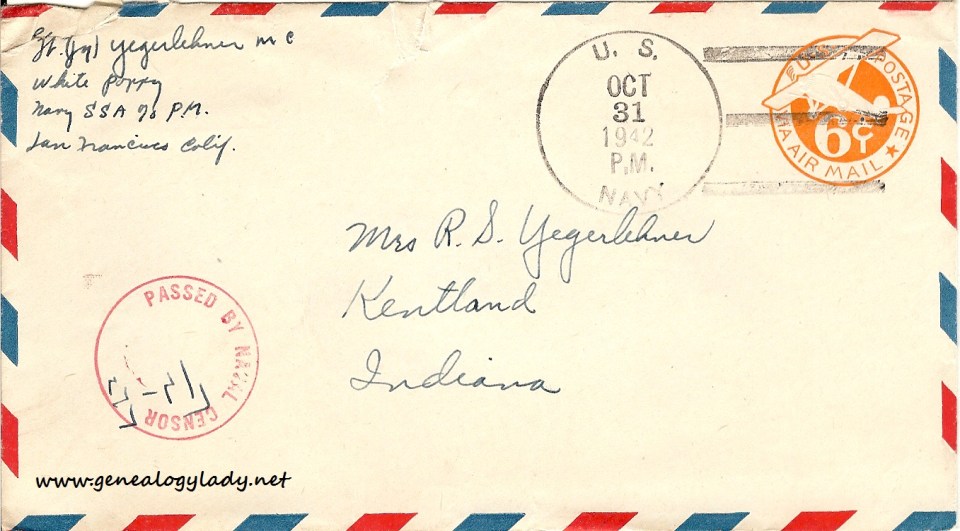 Lt. (jg) Yegerlehner MC
White Poppy
Navy SSA % P.M.
San Francisco Calif.
U. S.
OCT
31
1942
P.M.
NAVY
POSTAGE
6¢
VIA AIR MAIL
Mrs R. S. Yegerlehner
Kentland
Indiana
PASSED BY NAVAL CENSOR
www.genealogylady.net